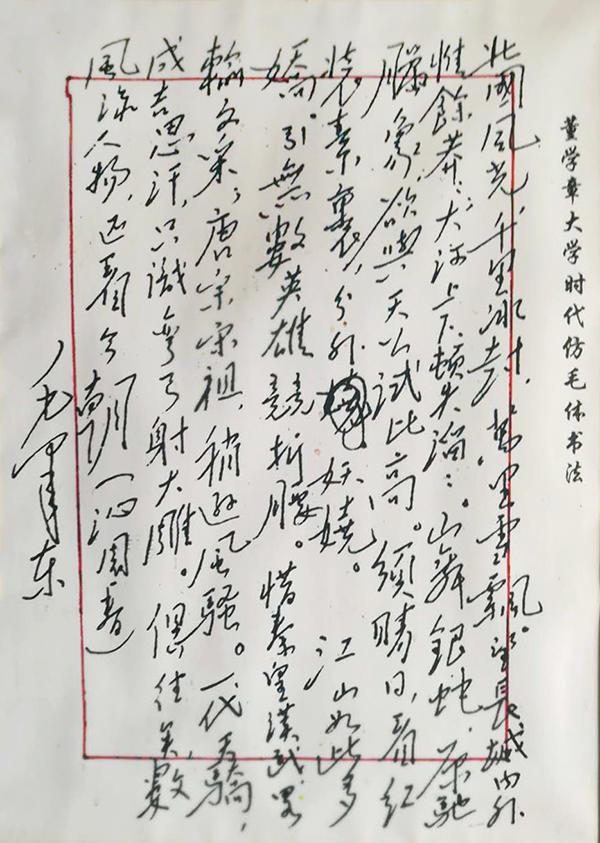 董学章大学时代仿毛体书法
北國風光,千里冰封,萬里雪飄。望長城内外
惟餘莽々,大河上下,頓失滔々。山舞銀蛇,原馳
臘象,欲與天公試比高。須晴日,看红
装素裹,分外妖娆。江山如此多
娇。引無數英雄競折腰。惜秦皇漢武,畧
輸文采;唐宗宋祖,稍逊风騷。一代天驕,
成吉思汗,只識弯弓射大雕。俱往矣,數
風流人物,还看今朝(沁园春)
毛泽东